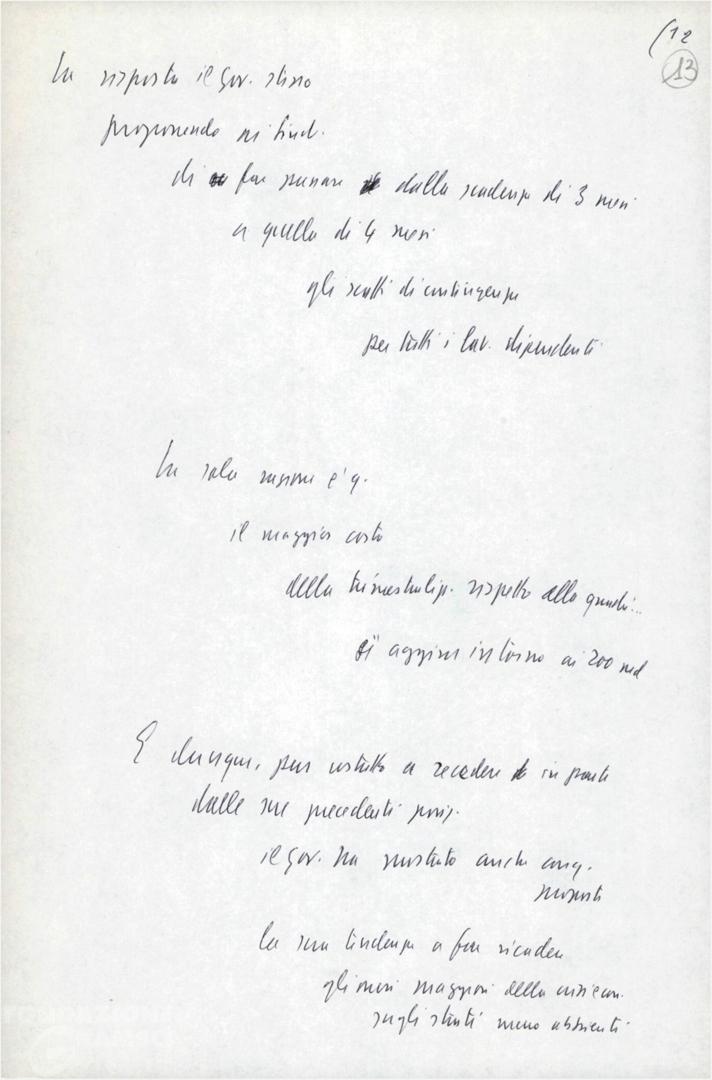 (12
13
In risposta il Gov. stesso
proponendo ai Sind.
di far passare dalla scadenza di 3 mesi
a quella di 4 mesi
gli scatti di contingenza
per tutti i lav. dipendenti
In sola è q.
il maggior costo
della trimestraliz. rispetto alla quadri...
si aggira intorno ai 200 md
E dunque, pur costretto a recedere in parte
dalle sue precedenti posiz.
il Gov. ha mostrato anche con q.
proposta
la sua tendenza a far ricadere
gli oneri maggiori della crisi econ.
sugli strati meno abbienti